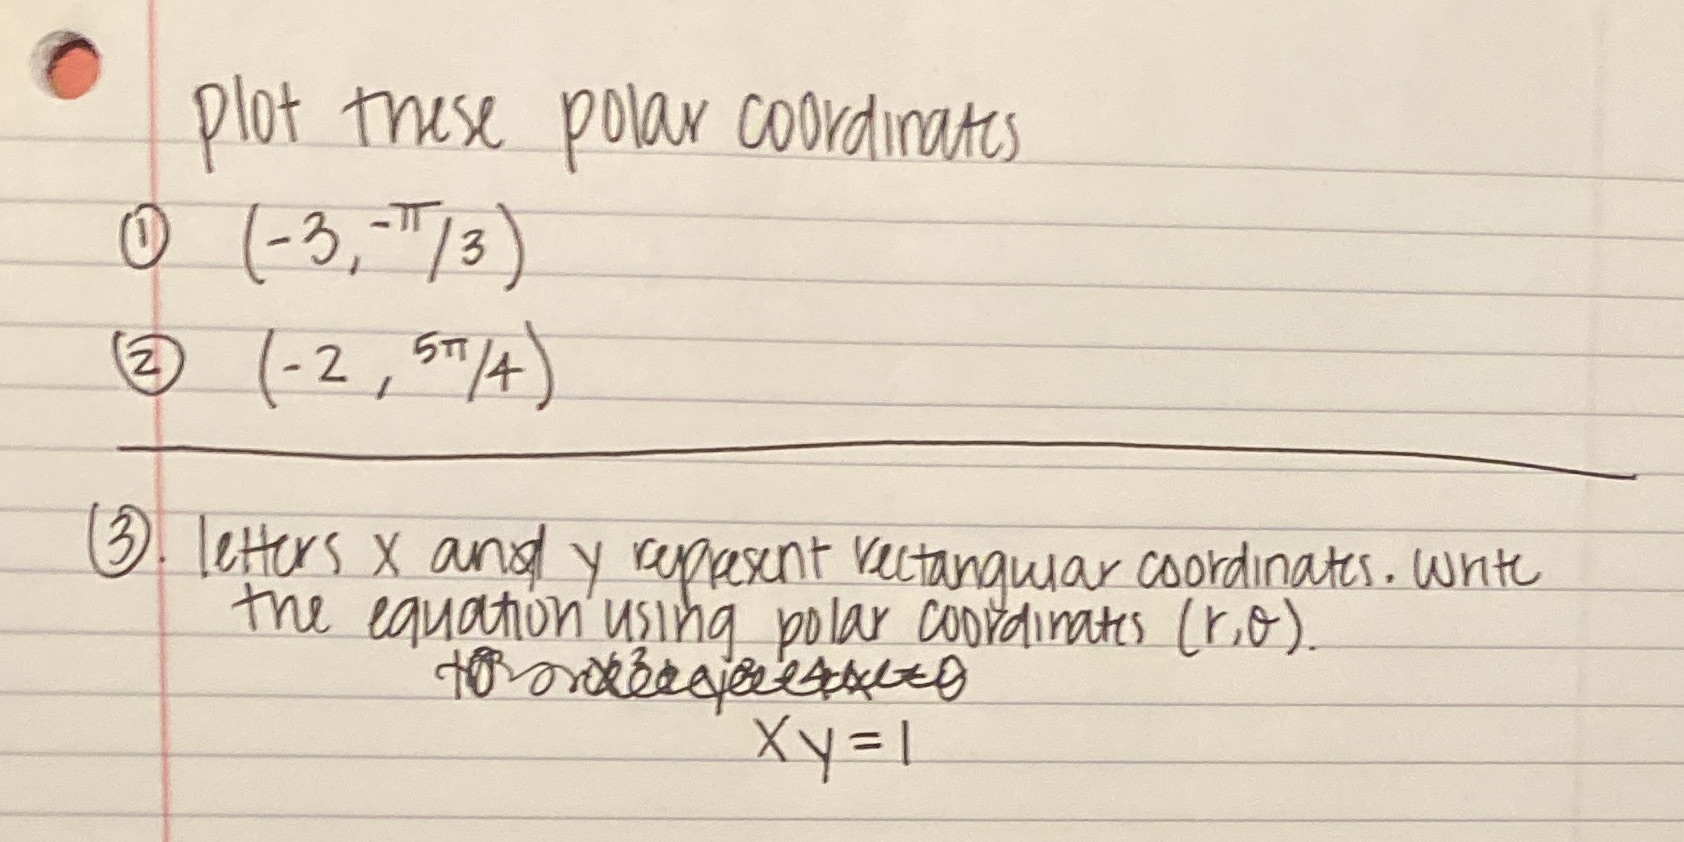 plot these polar coordinates
① (-3, -π/3)
② (-2, 5π/4)
③. letters x and y represent rectangular coordinates. Write
the equation using polar coordinates (r, θ).
xy = 1